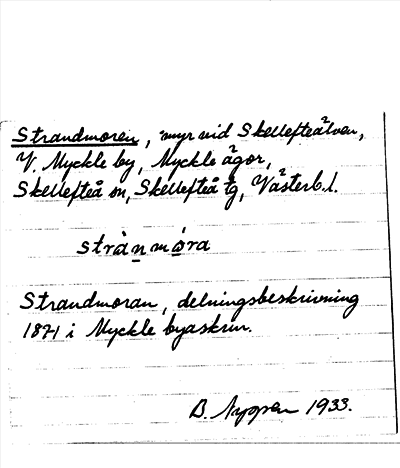 Strandmoren, myr vid Skellefteälven,
V. Myckle by, Myckle ägor,
Skellefteå sn, Skellefteå tg, Västerb. l.
strànmǿra
Strandmoran, delningsbeskrivning
1871 i Myckle byaskrin.
B. Nygren 1933.